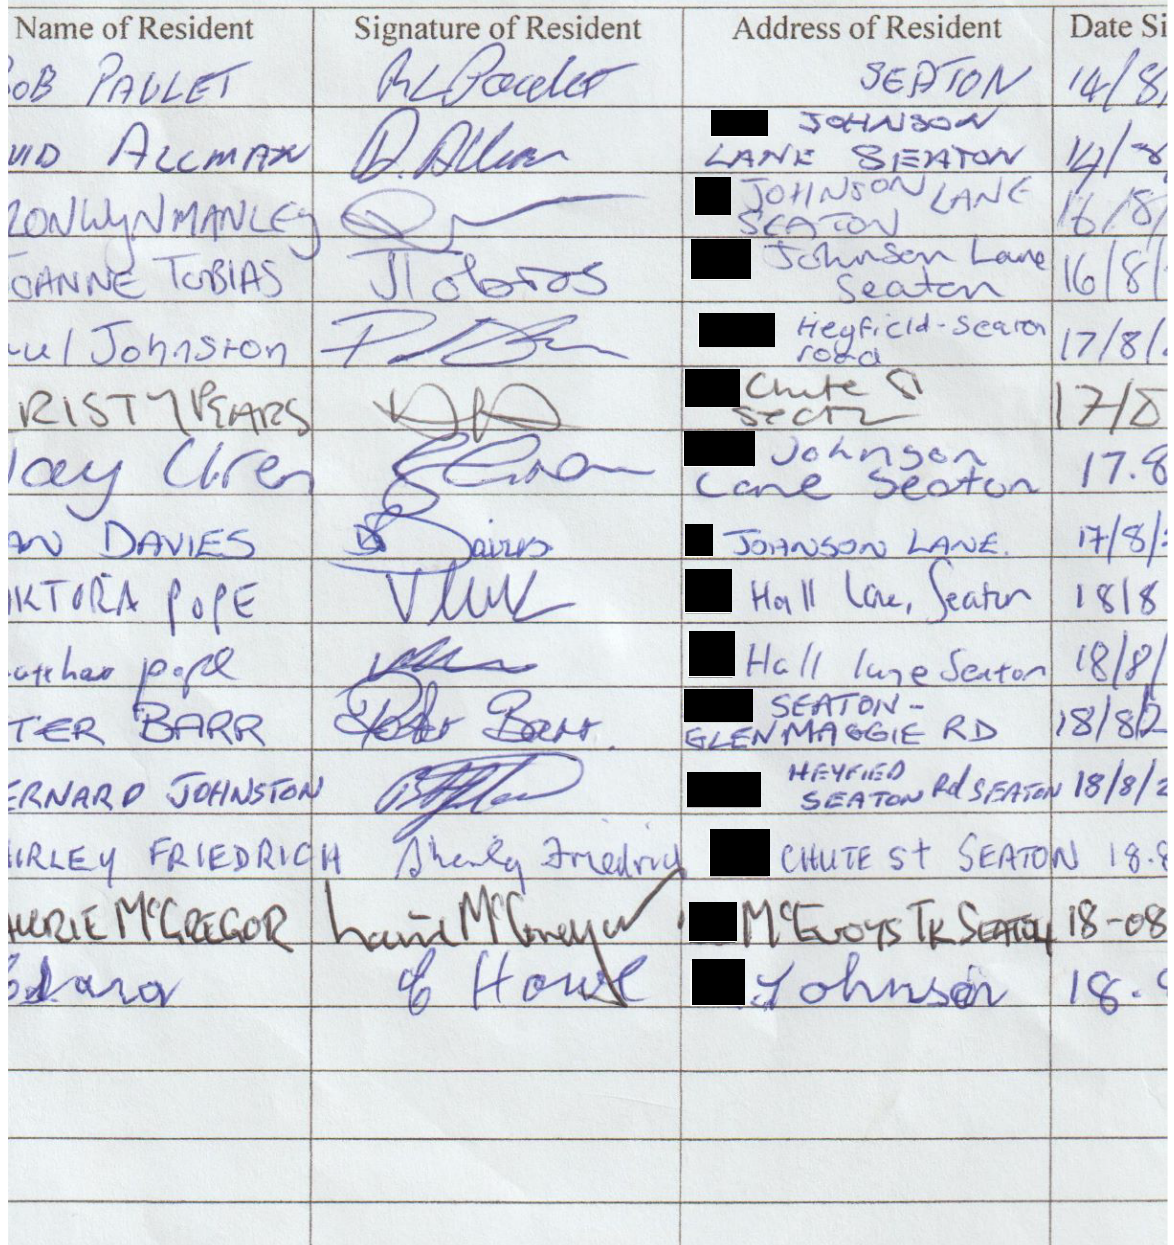 Name of Resident Signature of Resident Address of Resident Date Si
OB PAULET SEATON 14/8/
VID ALLMAN D. Allman JOHNSON
LANE SEATON 14/8
RONWYN MANLEY JOHNSON LANE
SEATON 16/8/
OANNE TOBIAS JTobias Johnson Lane
Seaton 16/8/
ul Johnston Heyfield-Seaton
road 17/8/
RISTY PEARS Chute St
17/8
Johnson
Lane Seaton 17.8
AN DAVIES Davies JOHNSON LANE. 17/8/
IKTORA POPE Hall Lane, Seaton 18/8
pope Hall lane Seaton 18/8/
TER BARR Peter Barr. SEATON-
GLENMAGGIE RD 18/8/2
ERNARD JOHNSTON HEYFIED
SEATON Rd SEATON 18/8/2
HIRLEY FRIEDRICH Shirley Friedrich CHUTE St SEATON 18.8
AURIE McGREGOR Laurie McGregor McEvoys TK SEATON 18-08
E Howe Johnson 18.